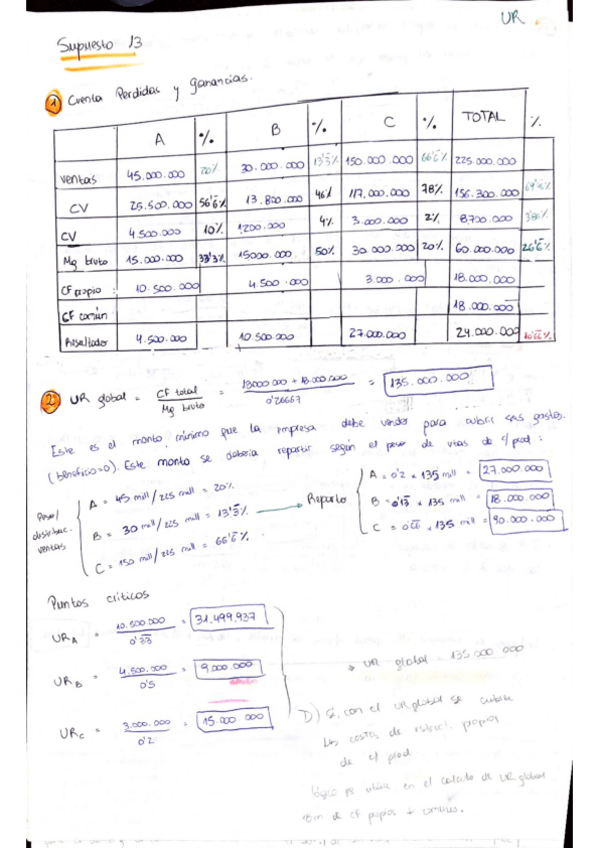 UR
Supuesto 13
1 Cuenta Perdidas y ganancias.
A % B % C % TOTAL %
Ventas 45.000.000 20% 30.000.000 13'3% 150.000.000 66'6% 225.000.000
CV 25.500.000 56'6% 13.800.000 46% 117.000.000 78% 156.300.000
CV 4.500.000 10% 1200.000 4% 3.000.000 2% 8700.000 3'86%
Mg bruto 15.000.000 33'3% 15000.000 50% 30.000.000 20% 60.000.000 26'6%
CF propio: 10.500.000 4.500.000 3.000.000 18.000.000
CF común 18.000.000
Resultado 4.500.000 10.500.000 27.000.000 24.000.000 10'66%
2 UR global = CF total / Mg bruto = 18000.000 + 18.000.000 / 0'26667 = 135.000.000
Este es el monto mínimo que la empresa debe vender para cubrir sus gastos.
(beneficio=0). Este monto se debería repartir según el peso de vtas de c/ prod:
Peso/ distribuc. ventas
A = 45 mill / 225 mill = 20%
B = 30 mill / 225 mill = 13'3%
C = 150 mill / 225 mill = 66'6%
Reparto
A = 0'2 x 135 mill = 27.000.000
B = 0'13 x 135 mill = 18.000.000
C = 0'66 x 135 mill = 90.000.000
Puntos críticos
URA = 10.500.000 / 0'33 = 31.499.937
URB = 4.500.000 / 0'5 = 9.000.000
URC = 3.000.000 / 0'2 = 15.000.000
UR global = 135 000 000
D) Si, con el UR global se cubren
los costes de propios
de c/ prod
lógico pq en el calculo de UR global
de CF propios + comunes.